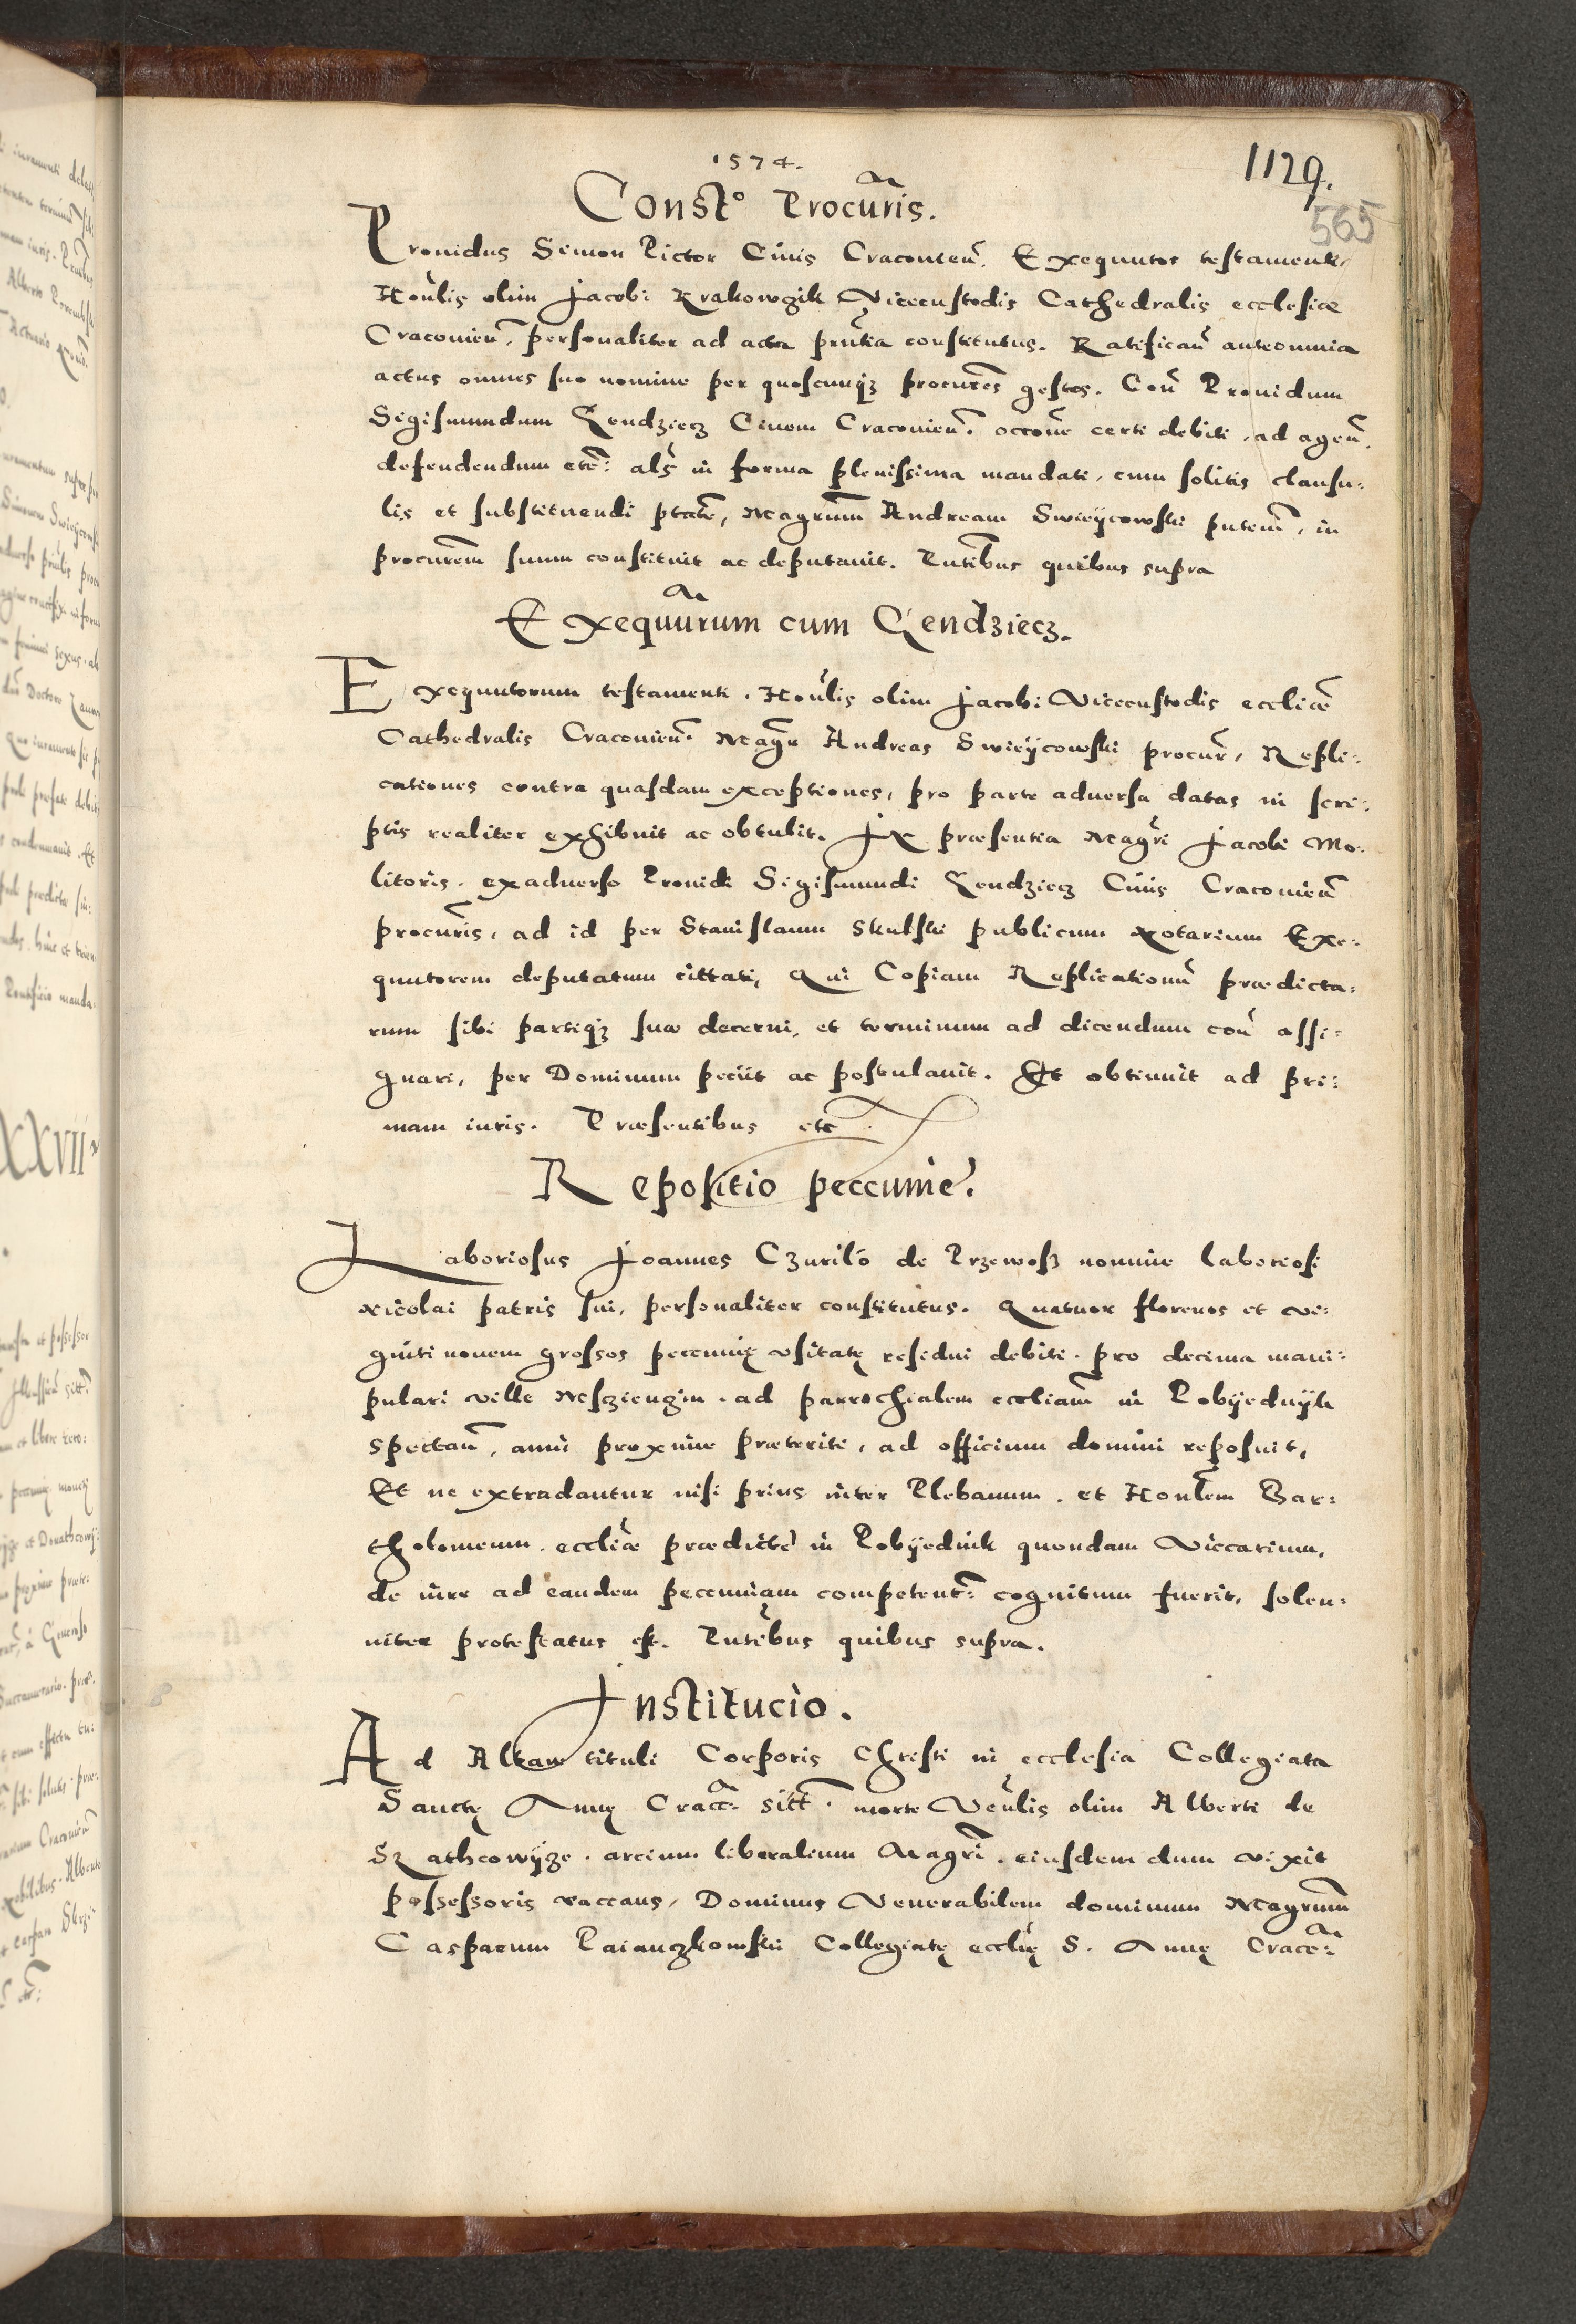 1574.
1129.
565
Const° Procuris.
Prouidus Simon Pictor Ciuis Craconieñ. Exequutor testamenti,
Honlis olim Jacobi Krakowczik Vicecustodis Cathedralis ecclesiæ
Craconieñ, personaliter ad acta pñtia constitutus. Ratificañ anteomnia
actus omnes suo nomine per quoscunqz procures gestos. Coñ Prouidum
Sigismundum Zendziecz Ciuem Craconieñ. occone certi debiti, ad ageñ,
defendendum etc: als in forma plenissima mandati, cum solitis clausu:
lis et substituendi ptate, Magrum Andream Swieycowski pntem, in
procurem suum constituit ac deputauit. Pntibus quibus supra
Exequũrum cum Zendziecz.
Exequutorum testamenti. Honlis olim Jacobi Vicecustodis eccliæ
Cathedralis Craconieñ. Magr Andreas Swieycowski procur, Repli:
cationes contra quasdam exceptiones, pro parte aduersa datas in scri:
ptis realiter exhibuit ac obtulit. In præsentia Magri Jacobi Mo:
litoris. exaduerso Prouidi Sigismundi Zendziecz Ciuis Craconieñ
procuris, ad id per Stanislaum Skulski publicum Notarium Exe:
quutorem deputatum cittati, Qui Copiam Replicationũ prædicta:
rum sibi partiqz suæ decerni, et terminum ad dicendum coñ assi:
gnari, per Dominum peciit ac postulauit. Et obtinuit ad pri:
mam iuris. Præsentibus etc.
Repositio peccunie.
Laboriosus Joannes Czurilo de Przewosz nomine laboriosi
Nicolai patris sui, personaliter constitutus. Quatuor florenos et vi:
ginti nouem grossos pecunię vsitatę residui debiti. pro decima mani:
pulari ville Niesczienzin. ad parrochialem eccliam in Pobyednyk
spectañ, anni proxime præterite, ad officium domini reposuit,
Et ne extradantur nisi prius inter Plebanum. et Honlem Bar:
tholomeum. eccliæ prædicte in Pobyednik quondam Viccarium,
de iure ad eandem pecuniam competent: cognitum fuerit, solen:
niter protestatus est. Pntibus quibus supra.
Institucio.
Ad Altare tituli Corporis Christi in ecclesia Collegiata
Sanctę Annę Cracc: sitt. morte Venlis olim Alberti de
Szathcowyze. arcium liberalium Magri. eiusdem dum vixit
possessoris vaccans, Dominus Venerabilem dominum Magrum
Casparum Paianczkowski Collegiatę ecclię S. Annę Cracc: